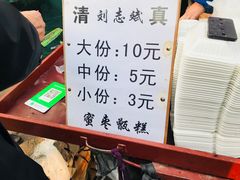 清 刘志斌 真
大份：10元
中份：5元
小份：3元
蜜枣甑糕